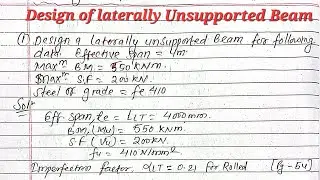 Design of laterally Unsupported Beam
① Design a laterally unsupported Beam for following
data Effective span = 4m.
Maxm B.M = 550 KNm.
Maxm S.F = 200 KN.
Steel of grade = fe 410
Soln
Eff. span, Le = LLT = 4000mm.
B.M, (Mu) = 550 KNm.
S.F (Vu) = 200KN.
fu = 410 N/mm²
Imperfection factor. αLT = 0.21 for Rolled [Pg-54]